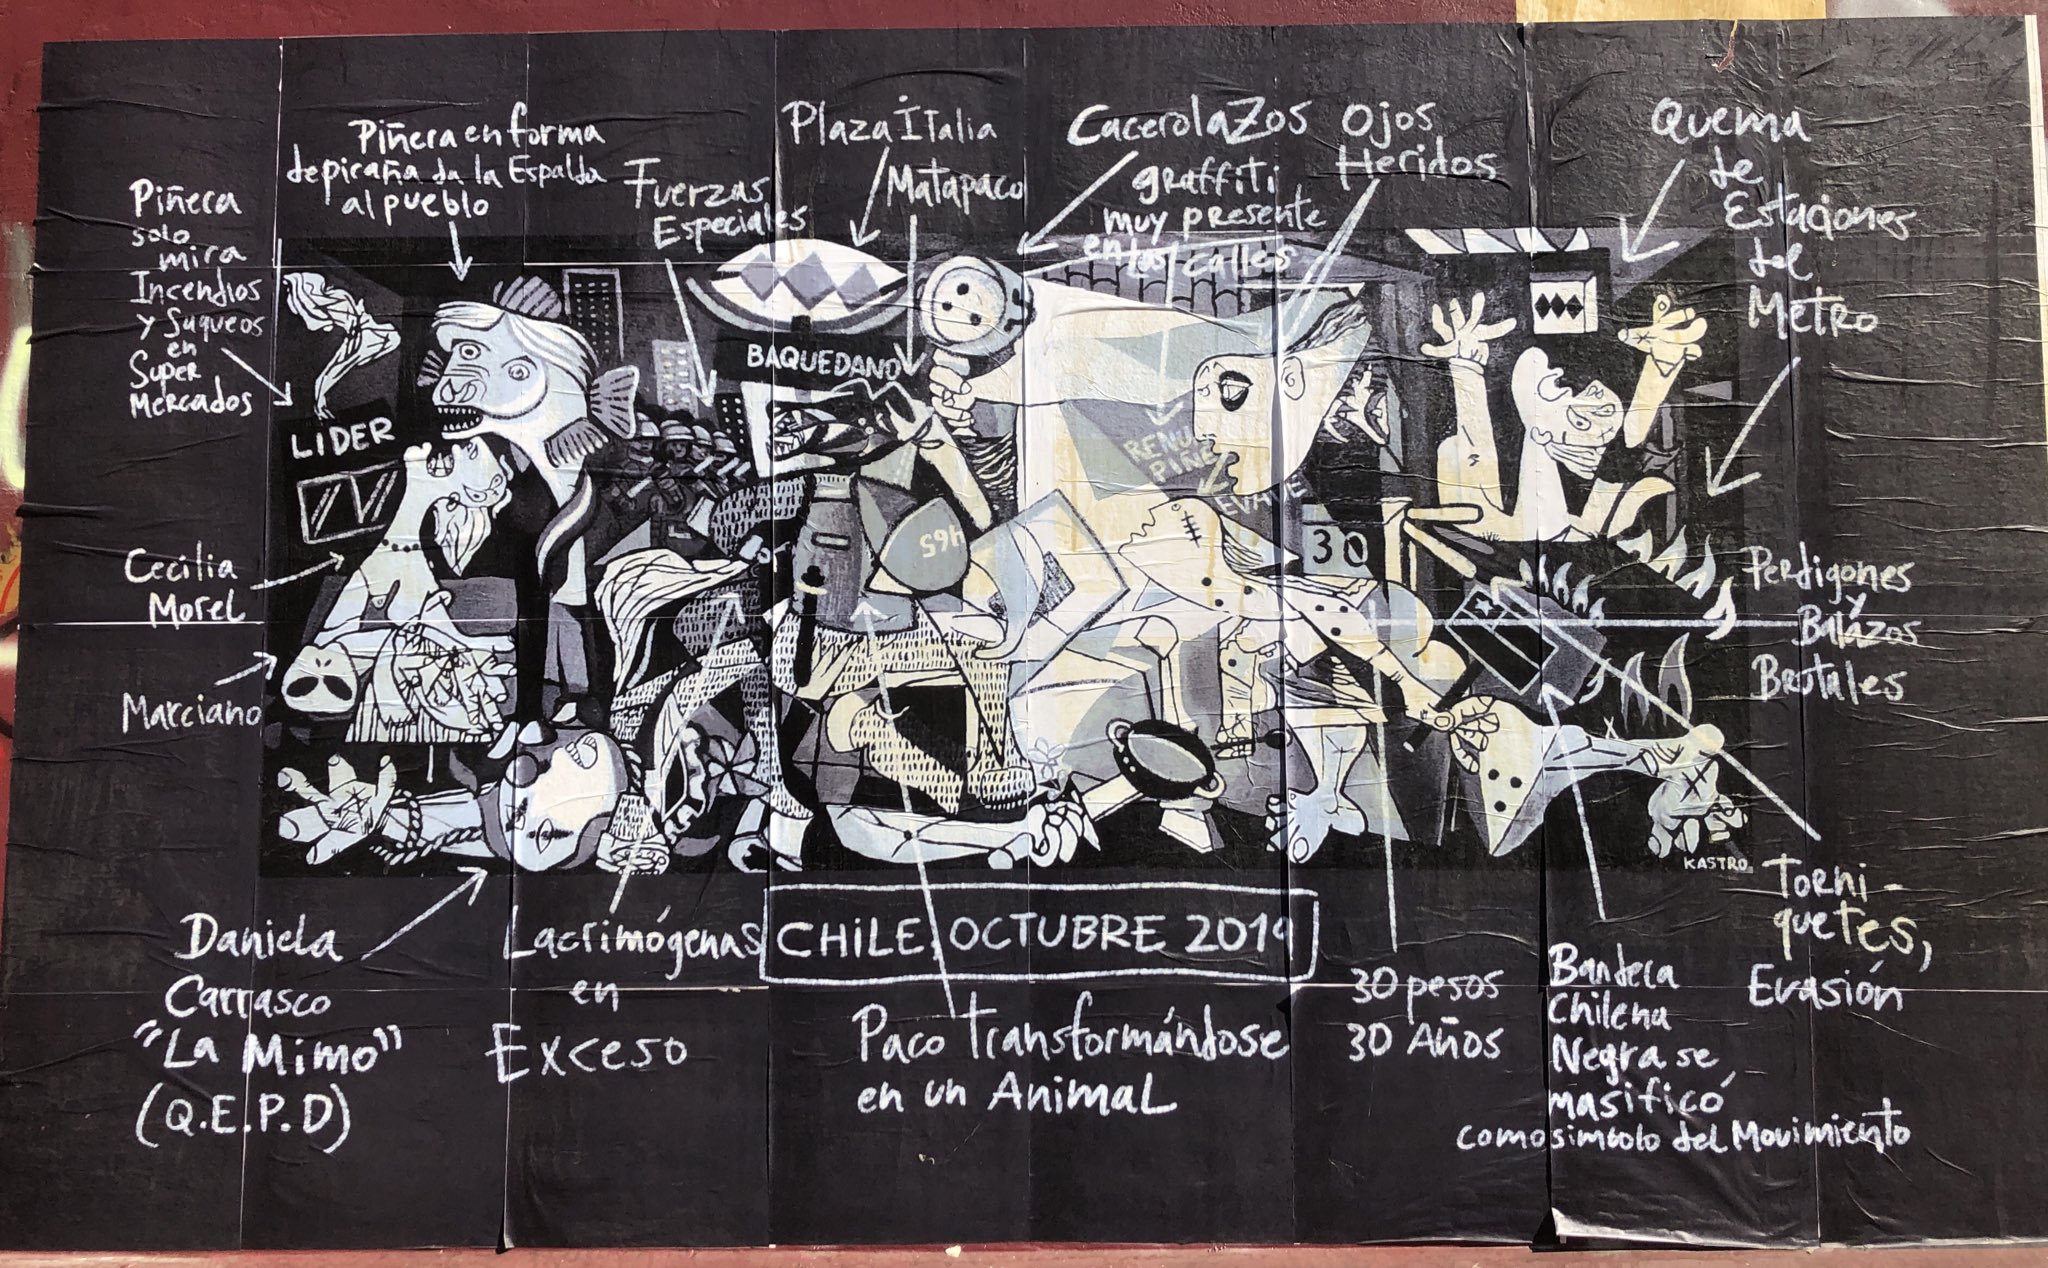 Piñera en forma
de piraña da la Espalda
al pueblo
Piñera
solo
mira
Incendios
y Saqueos
en
Super
Mercados
Fuerzas
Especiales
Plaza Italia
Matapaco
Cacerolazos
graffiti
muy presente
en las calles
Ojos
Heridos
Quema
de
Estaciones
del
Metro
LIDER
BAQUEDANO
RENU
PIÑE
EVADE
465
30
Cecilia
Morel
Marciano
Perdigones
y
Balazos
Brutales
KASTRO
Daniela
Carrasco
"La Mimo"
(Q.E.P.D)
Lacrimógenas
en
Exceso
CHILE, OCTUBRE 2019
Paco Transformándose
en un Animal
30 pesos
30 Años
Bandera
Chilena
Negra se
masificó
como simbolo del Movimiento
Torni-
quetes,
Evasión